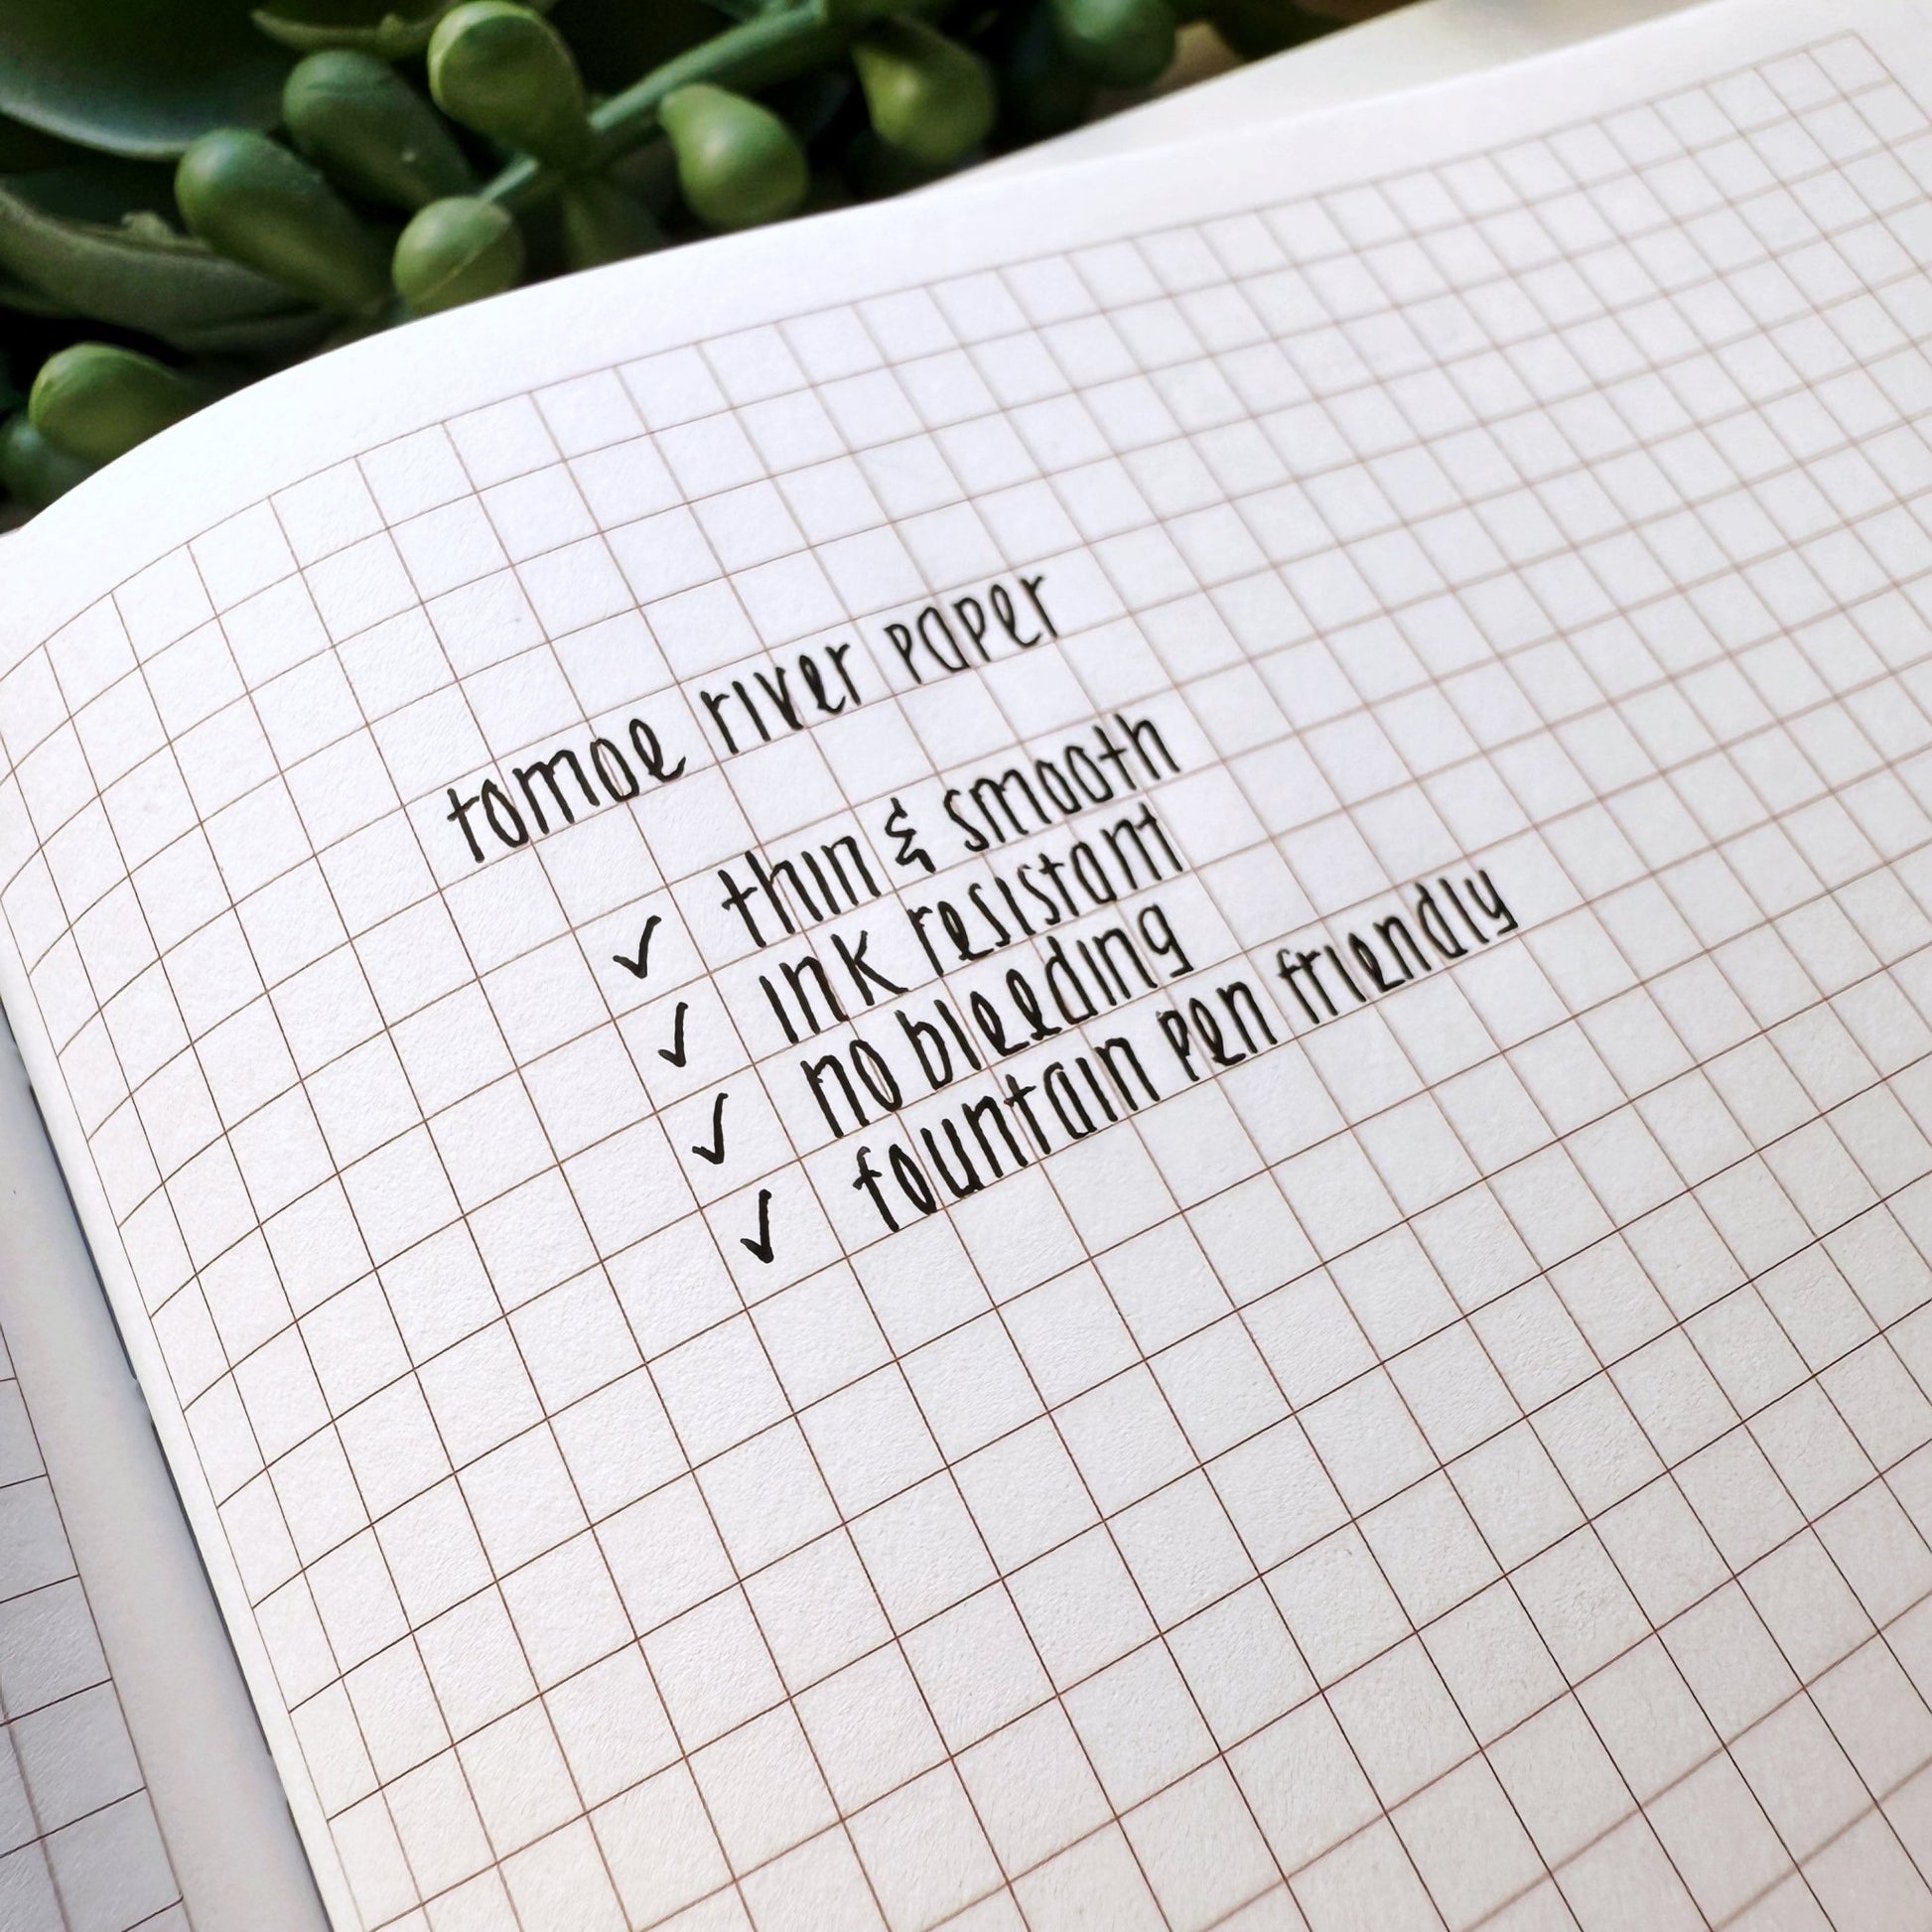 tomoe river paper
✓ thin & smooth
✓ ink resistant
✓ no bleeding
✓ fountain pen friendly